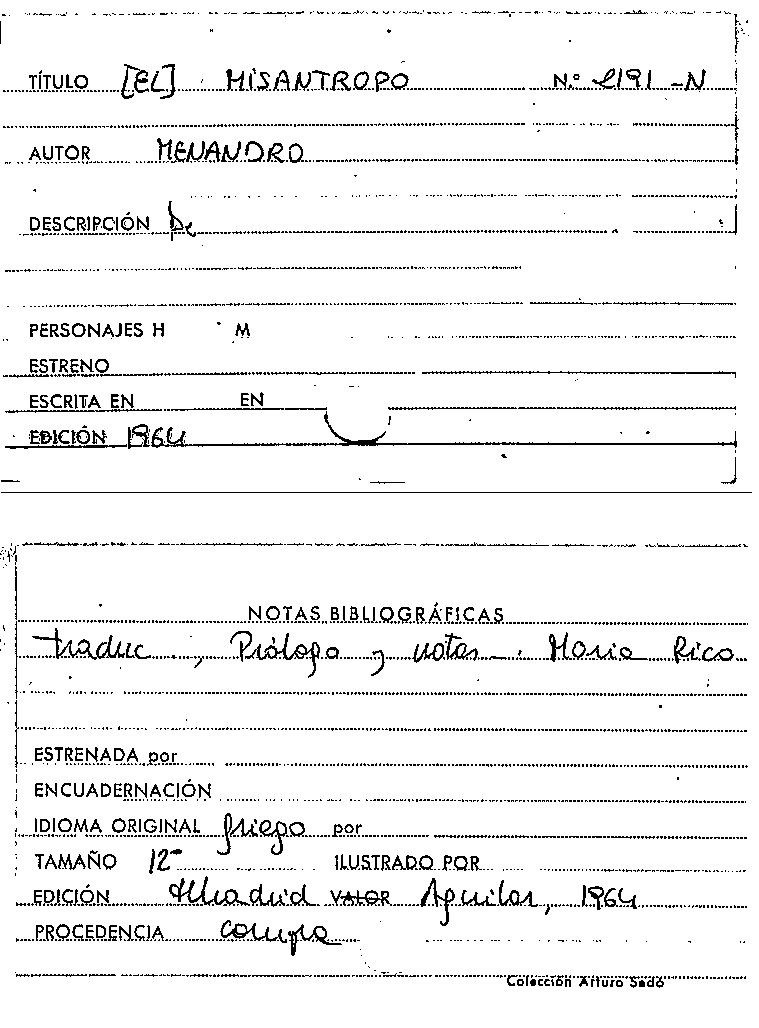 TÍTULO [EL] MISANTROPO N.º 2191 -N
AUTOR MENANDRO
DESCRIPCIÓN De
PERSONAJES H M
ESTRENO
ESCRITA EN EN
EDICIÓN 1964
NOTAS BIBLIOGRÁFICAS
traduc., Prólogo y notas. Maria Rico
ESTRENADA por
ENCUADERNACIÓN
IDIOMA ORIGINAL griego por
TAMAÑO 12º ILUSTRADO POR
EDICIÓN Madrid VALOR Aguilar, 1964
PROCEDENCIA compra
Colección Arturo Sedó